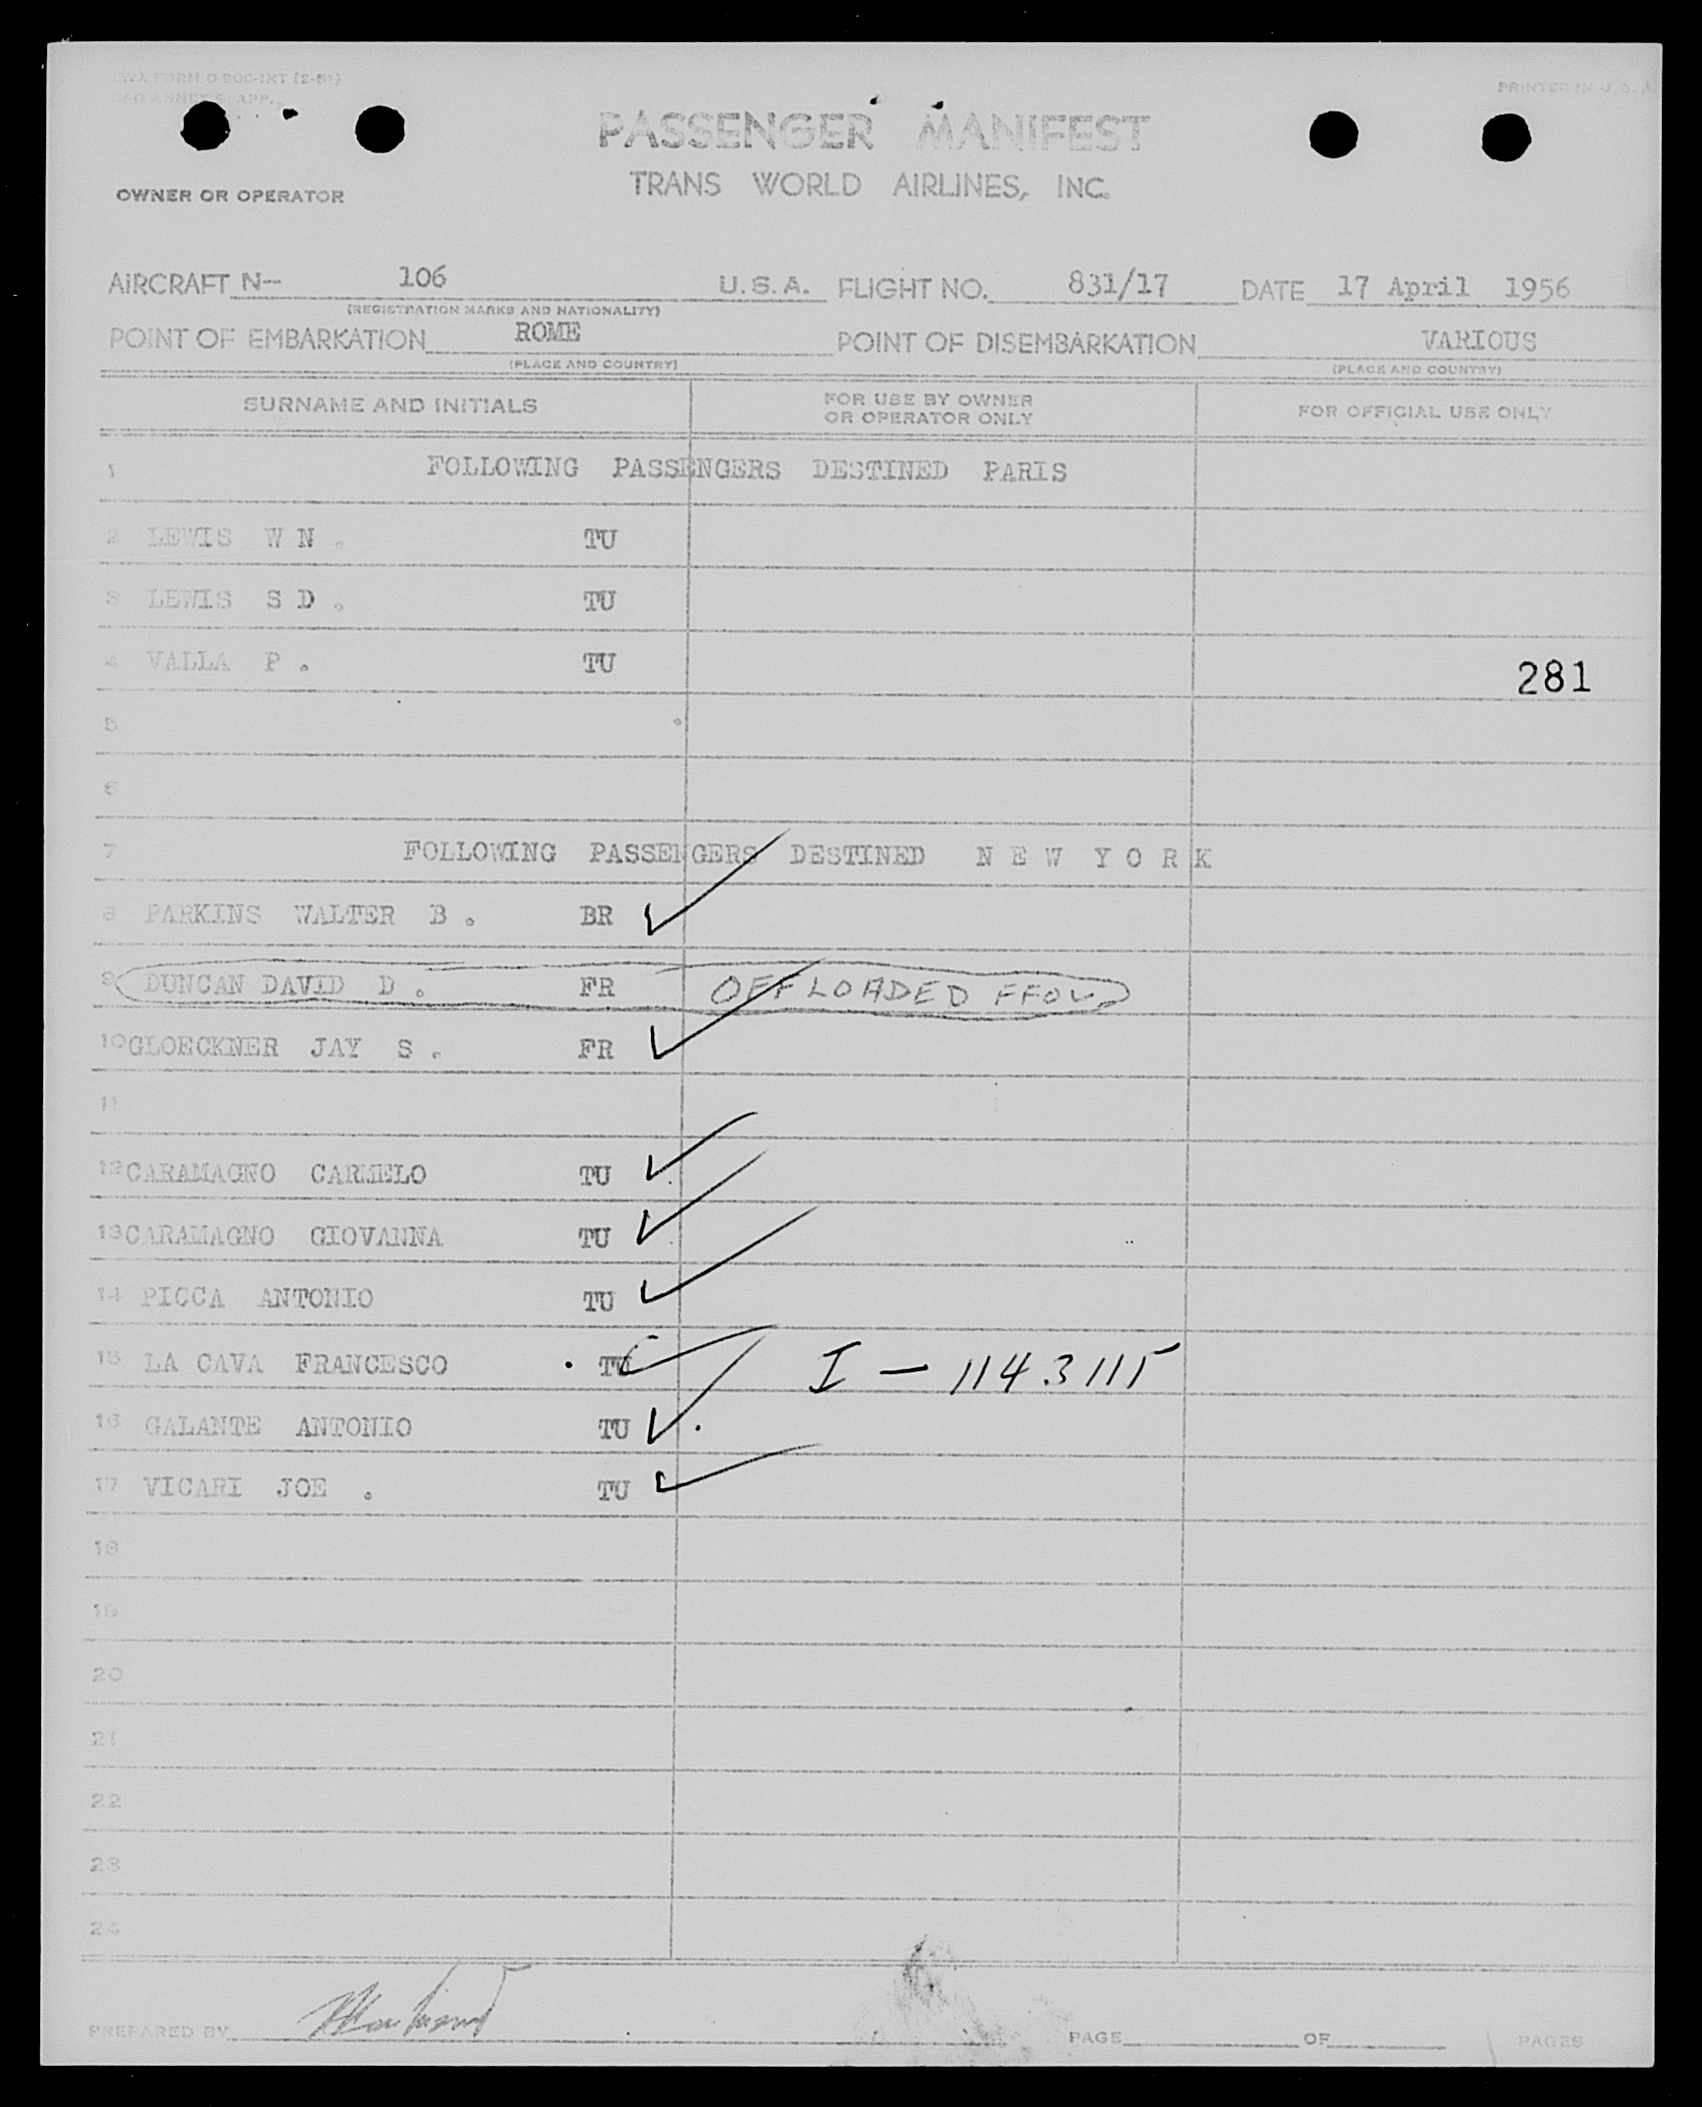 TWA FORM O-200-INT (2-51)
PRINTED IN U.S.A.
PASSENGER MANIFEST
TRANS WORLD AIRLINES, INC.
OWNER OR OPERATOR
AIRCRAFT N-- 106 U.S.A. FLIGHT NO. 831/17 DATE 17 April 1956
(REGISTRATION MARKS AND NATIONALITY)
POINT OF EMBARKATION ROME POINT OF DISEMBARKATION VARIOUS
(PLACE AND COUNTRY) (PLACE AND COUNTRY)
SURNAME AND INITIALS FOR USE BY OWNER OR OPERATOR ONLY FOR OFFICIAL USE ONLY
1 FOLLOWING PASSENGERS DESTINED PARIS
2 LEWIS W N . TU
3 LEWIS S D . TU
4 VALLA P . TU
281
5
6
7 FOLLOWING PASSENGERS DESTINED N E W Y O R K
8 PARKINS WALTER B . BR
9 DUNCAN DAVID D . FR OFFLOADED
10 GLOECKNER JAY S . FR
11
12 CARAMAGNO CARMELO TU
13 CARAMAGNO GIOVANNA TU
14 PICCA ANTONIO TU
15 LA CAVA FRANCESCO TU I - 114.3115
16 GALANTE ANTONIO TU
17 VICARI JOE . TU
18
19
20
21
22
23
24
PREPARED BY PAGE OF PAGES